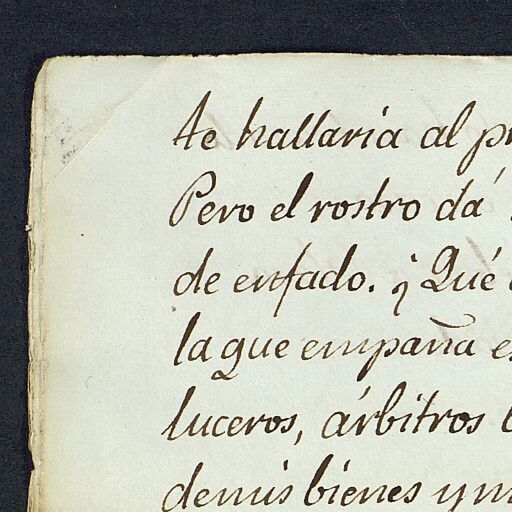 te hallaria al
Pero el rostro dá
de enfado. ¿Qué
la que empaña
luceros, árbitros
de mis bienes y